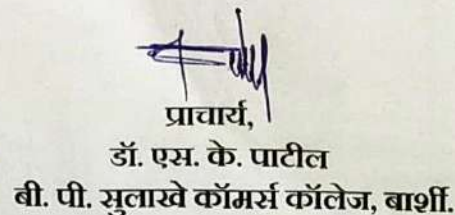 प्राचार्य,
डॉ. एस. के. पाटील
बी. पी. सुलाखे कॉमर्स कॉलेज, बार्शी.